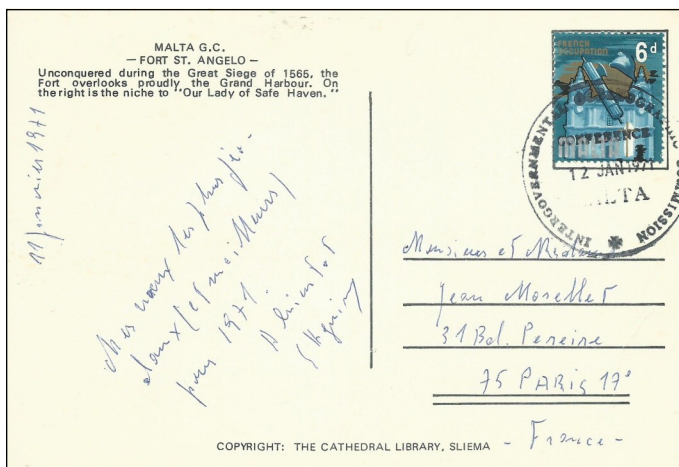 MALTA G.C.
— FORT ST. ANGELO —
Unconquered during the Great Siege of 1565, the
Fort overlooks proudly the Grand Harbour. On
the right is the niche to "Our Lady of Safe Haven."
11 janvier 1971
Mes vœux les plus
(et meilleurs)
pour 1971
A bientôt
FRENCH
OCCUPATION
6d
MALTA
INTERGOVERNMENTAL OCEANOGRAPHIC COMMISSION
CONFERENCE
12 JAN 1971
MALTA
Monsieur et Madame
Jean Morellet
31 Bd. Pereire
75 PARIS 17e
- France -
COPYRIGHT: THE CATHEDRAL LIBRARY, SLIEMA